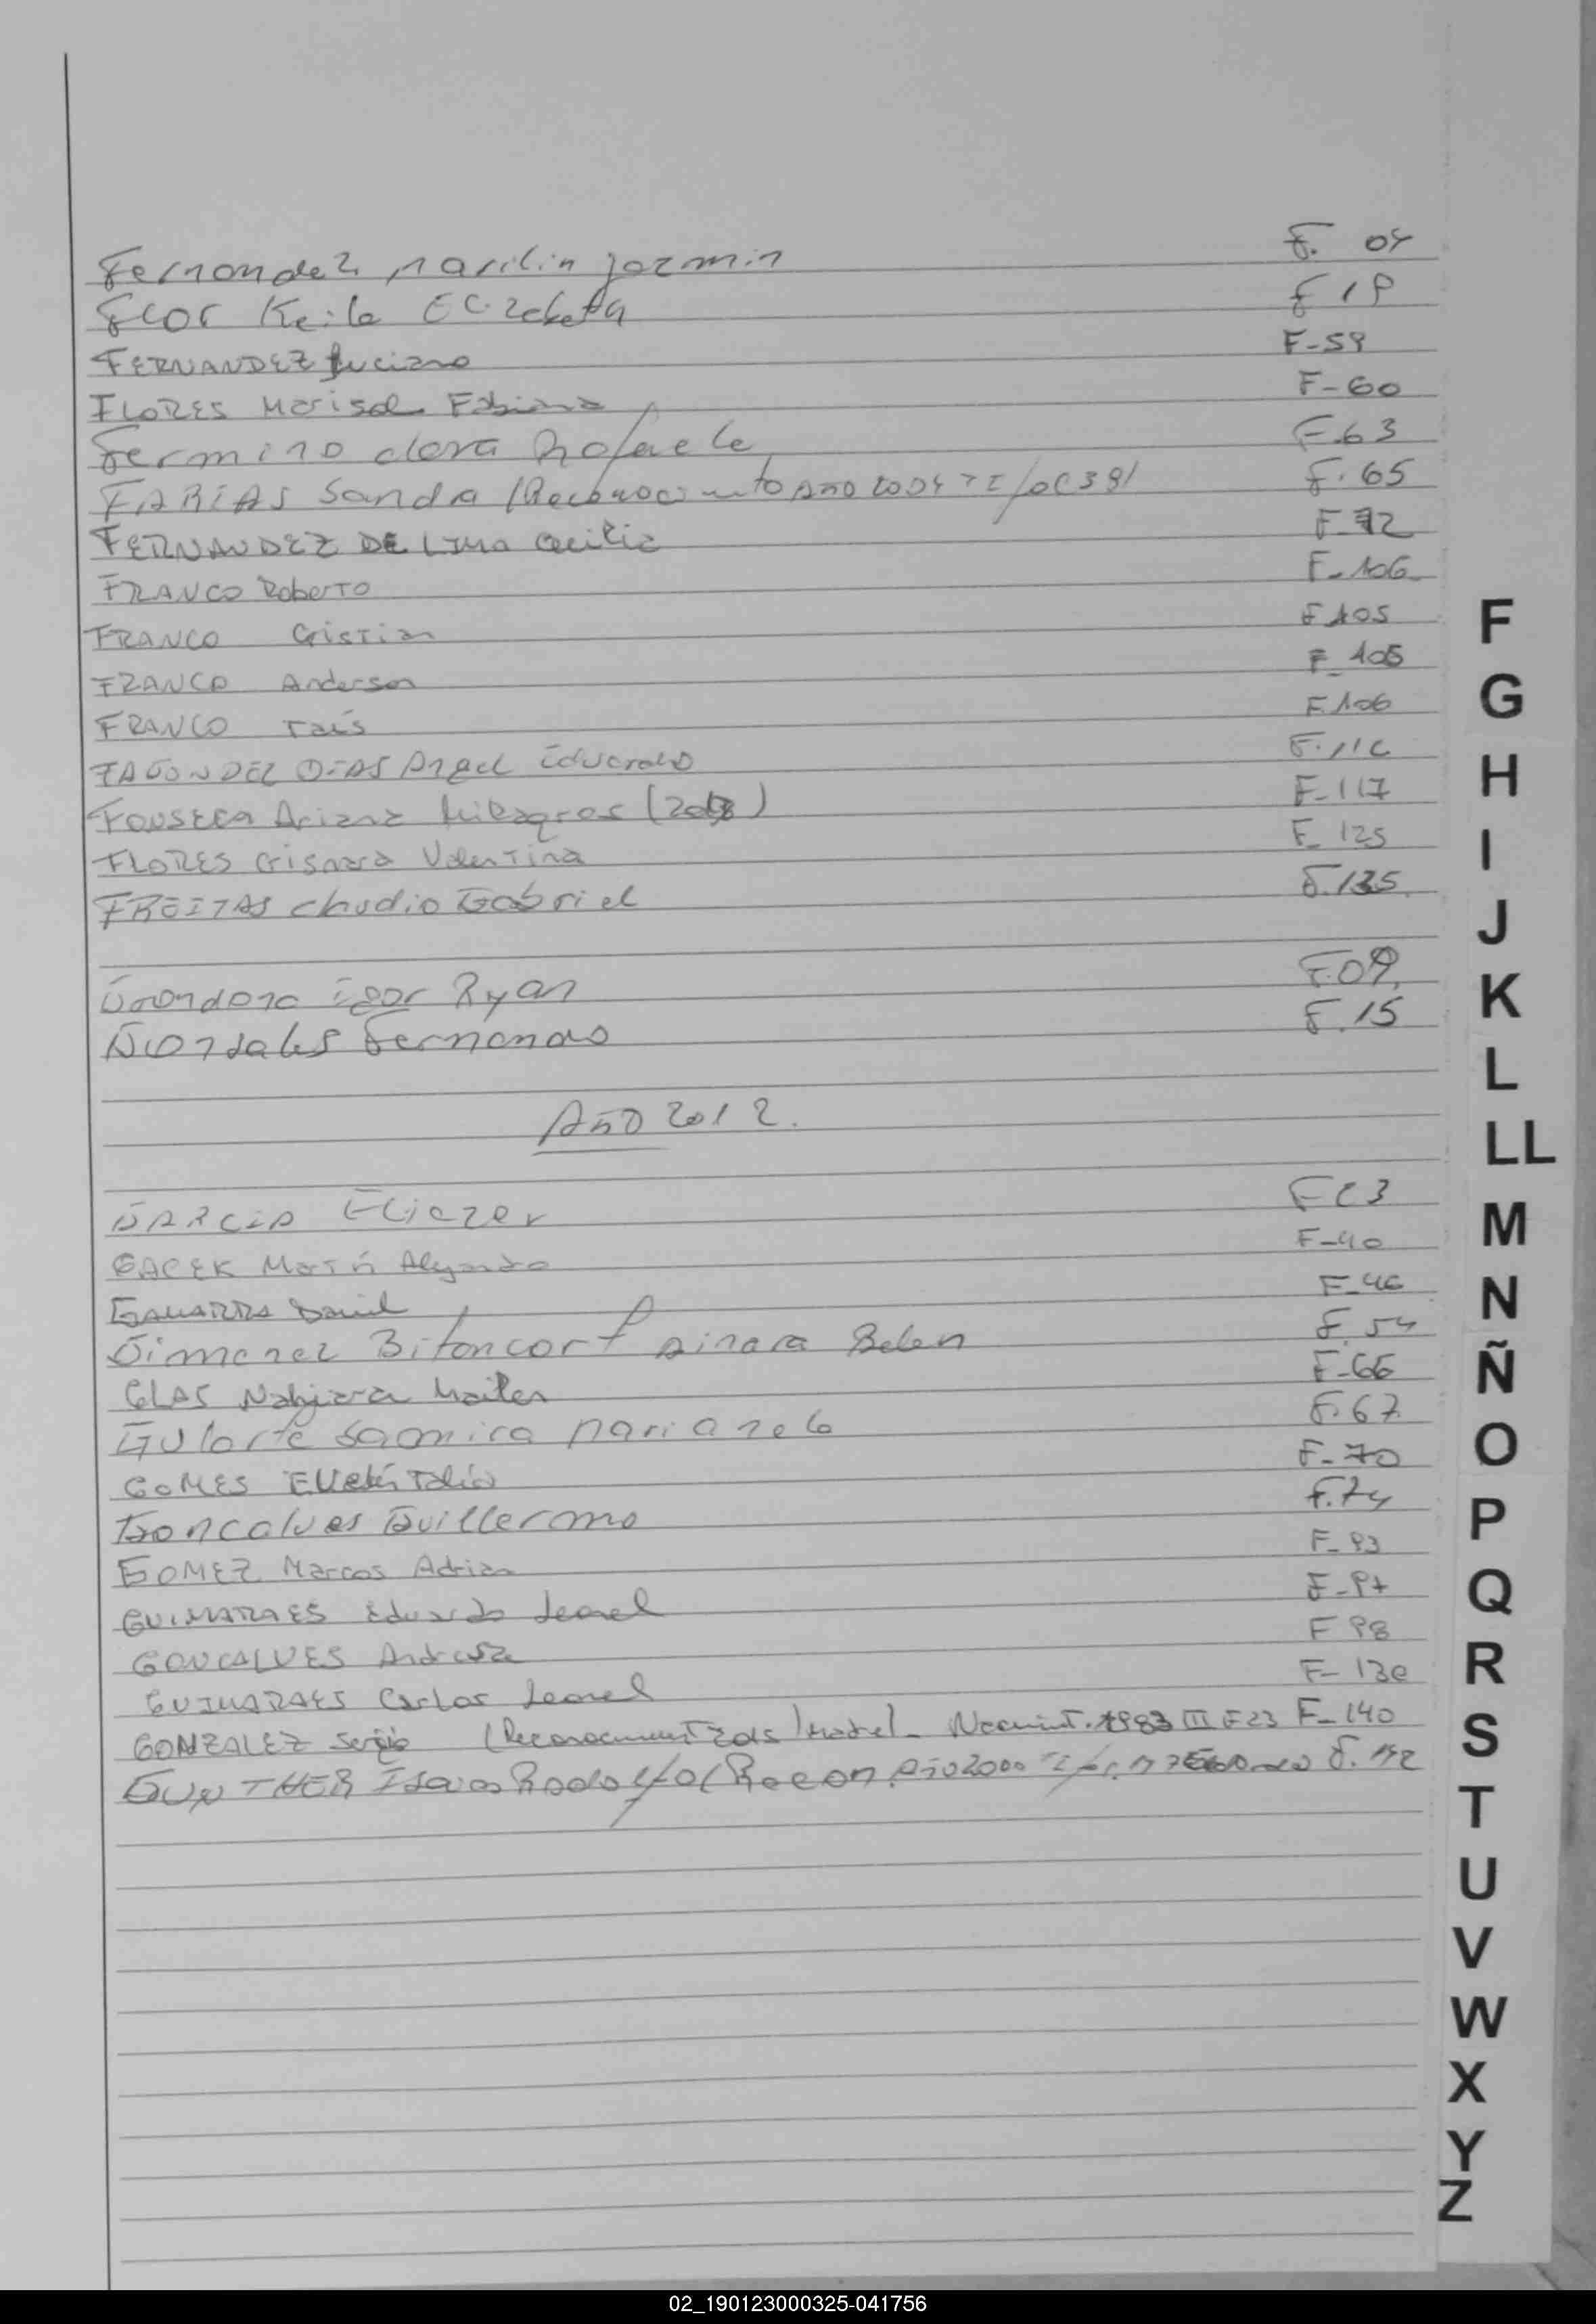 Fernandez Marilin Jazmin F. 04
Flor Keila Elizabeth F 19
FERNANDEZ Luciano F-59
FLORES Marisol Fabiana F-60
Fermino clara Rafaela F.63
FARIAS Sandra (Reconocimiento Año 2004 F. 65
FERNANDEZ DE LIMA Cecilia F-72
FRANCO Roberto F-106
FRANCO Cristian F 105
FRANCO Anderson F 105
FRANCO Tais F.106
DIAS Angel Eduardo
FONSECA Ariana Milagros F-117
FLORES Valentina F- 125
FREITAS Claudio Gabriel F.135
Igor Ryan F.09
Gonsales Fernando F.15
Año 2012.
GARCIA Eliezer F 23
GACEK Martin Alejandro F-40
GAMARRA Daniel F-46
Gimenez Bitancort Ainara Belen F. 54
GLAS Nahiara Mailen F-66
Gularte Samira Marianela F.67
GOMES Talia F-70
Goncalves Guillermo F.74
GOMEZ Marcos Adrian F- 93
GUIMARAES Eduardo Leonel F-97
GONCALVES Andresa F 98
GUIMARAES Carlos Leonel
GONZALEZ Sergio 1983 III F 23 F-140
GUNTHER Isaias Rodolfo (Recon. Año 2000
F
G
H
I
J
K
L
LL
M
N
Ñ
O
P
Q
R
S
T
U
V
W
X
Y
Z
02_190123000325-041756